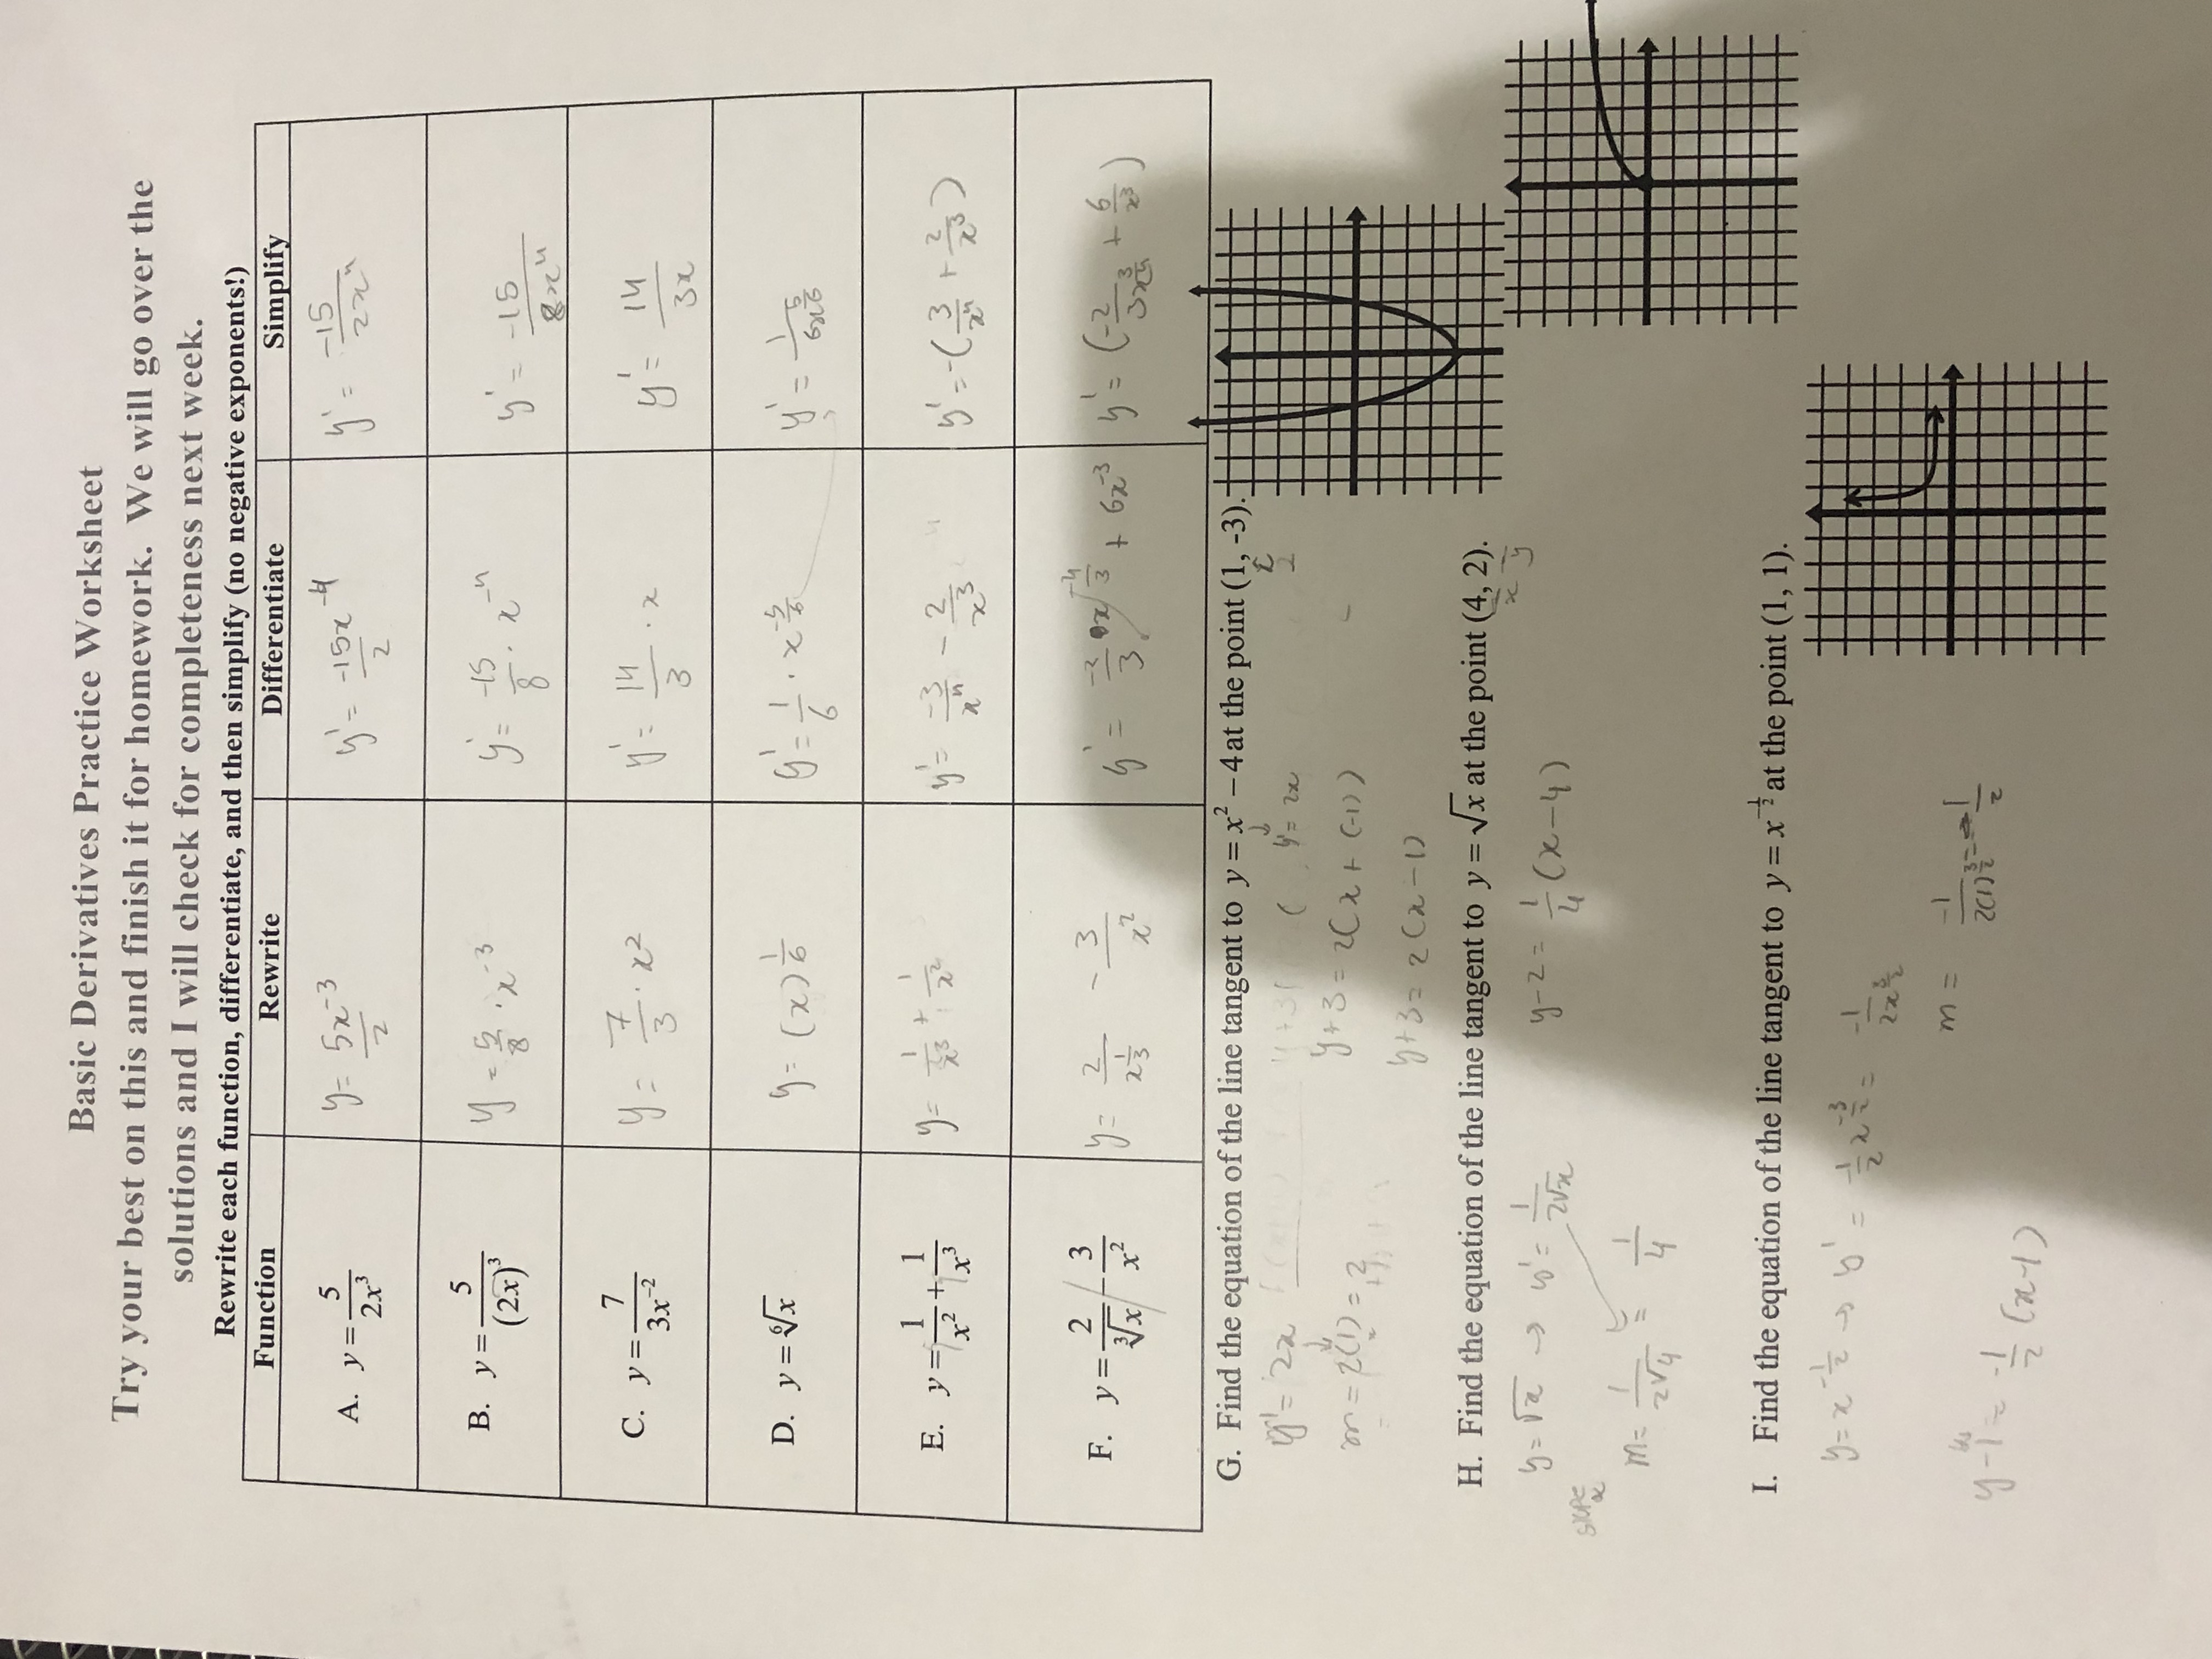 Basic Derivatives Practice Worksheet
Try your best on this and finish it for homework. We will go over the
solutions and I will check for completeness next week.
Rewrite each function, differentiate, and then simplify (no negative exponents!)
Function Rewrite Differentiate Simplify
A. y = 5/(2x³) y = 5x⁻³/2 y' = -15x⁻⁴/2 y' = -15/(2x⁴)
B. y = 5/(2x)³ y = 5/8 · x⁻³ y' = -15/8 · x⁻⁴ y' = -15/(8x⁴)
C. y = 7/(3x⁻²) y = 7/3 · x² y' = 14/3 · x y' = 14/(3x)
D. y = ⁶√x y = (x)^(1/6) y' = 1/6 · x^(-5/6) y' = 1/(6x^(5/6))
E. y = 1/x² + 1/x³ y = 1/x³ + 1/x² y' = -3/x⁴ - 2/x³ y' = -(3/x⁴ + 2/x³)
F. y = 2/³√x - 3/x² y = 2/x^(1/3) - 3/x² y' = -2/3 x^(-4/3) + 6x⁻³ y' = (-2/(3x^(4/3)) + 6/x³)
G. Find the equation of the line tangent to y = x² – 4 at the point (1, -3).
y' = 2x y' = 2x
m = 2(1) = 2 y+3 = 2(x+(-1))
y+3 = 2(x-1)
H. Find the equation of the line tangent to y = √x at the point (4, 2).
x y
y = √x → y' = 1/(2√x) y-2 = 1/4 (x-4)
m = 1/(2√4) = 1/4
I. Find the equation of the line tangent to y = x^(-1/2) at the point (1, 1).
y = x^(-1/2) → y' = -1/2 x^(-3/2) = -1/(2x^(3/2))
m = -1/(2(1)^(3/2)) = -1/2
y-1 = -1/2 (x-1)